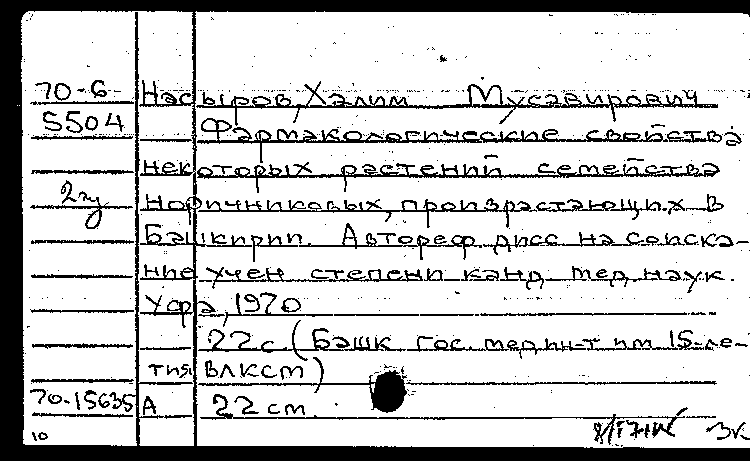 70-6 Насыров, Халим Мусавирович
5504 Фармакологические свойства
некоторых растений семейства
2 норичниковых, произрастающих в
Башкирии. Автореф. дисс на соиска-
ние учен степени канд. мед. наук.
Уфа, 1970
22 с. (Башк гос. мед ин-т им 15-ле-
тия ВЛКСМ)
70-15635 А 22 см.
10